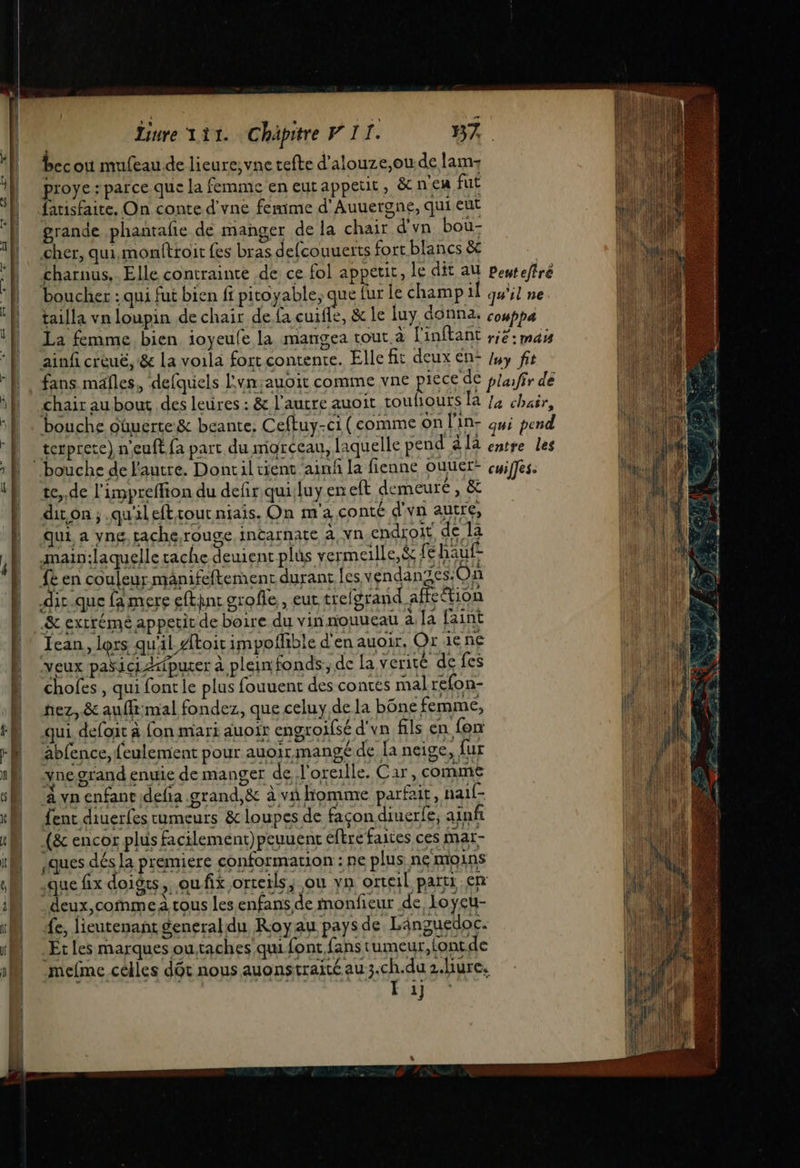 Liure III. Chapitre VII. 137
bec ou museau de lieure, vne teste d'alouze, ou de lam-
proye : parce que la femme en eut appetit, & n'en fut
satisfaite. On conte d'vne femme d'Auuergne, qui eut
grande phantasie de manger de la chair d'vn bou-
cher, qui monstroit ses bras descouuerts fort blancs &
charnus. Elle contrainte de ce sol appetit, le dit au
boucher : qui fut bien si pitoyable, que sur le champ il
tailla vn loupin de chair de sa cuisse, & le luy donna.
La femme bien ioyeuse la mangea tout à l'instant
ainsi creuë, & la voila fort contente. Elle fit deux en-
fans masles, desquels l'vn auoit comme vne piece de
chair au bout des leures : & l'autre auoit tousiours la
bouche ouuerte & beante. Cestuy-ci (comme on l'in-
terprete) n'eust sa part du morceau, laquelle pend à la
bouche de l'autre. Dont il tient ainsi la sienne ouuer-
te, de l'impression du desir qui luy en est demeuré, &
dit on, qu'il est tout niais. On m'a conté d'vn autre,
qui a vne tache rouge incarnate à vn endroit de la
main: laquelle tache deuient plus vermeille, & se hauf-
se en couleur manifestement durant les vendanges. On
dit que sa mere estant grosse, eut tresgrand affection
& extréme appetit de boire du vin nouueau à la saint
Iean, lors qu'il estoit impossible d'en auoir. Or ie ne
veux pas ici disputer à plein fonds, de la verité de ses
choses, qui sont le plus souuent des contes mal reson-
nez, & aussi mal fondez, que celuy de la bône femme,
qui desoit à son mari auoir engroissé d'vn fils en son
absence, seulement pour auoir mangé de la neige, sur
vne grand enuie de manger de l'oreille. Car, comme
à vn enfant desia grand, & à vn homme parfait, nais-
sent diuerses tumeurs & loupes de façon diuerse, ainsi
(& encor plus facilement) peuuent estre faites ces mar-
ques dés la premiere conformation : ne plus ne moins
que six doigts, ou six orteils, ou vn orteil parti en
deux, comme à tous les enfans de monsieur de Ioyeu-
se, lieutenant general du Roy au pays de Languedoc.
Et les marques ou taches qui sont sans tumeur, sont de
mesme celles dôt nous auons traité au 3. ch. du 2. liure.
I ij
Peut estré
qu'il ne
couppa
rié : mais
luy fit
plaisir de
la chair,
qui pend
entre les
cuisses.